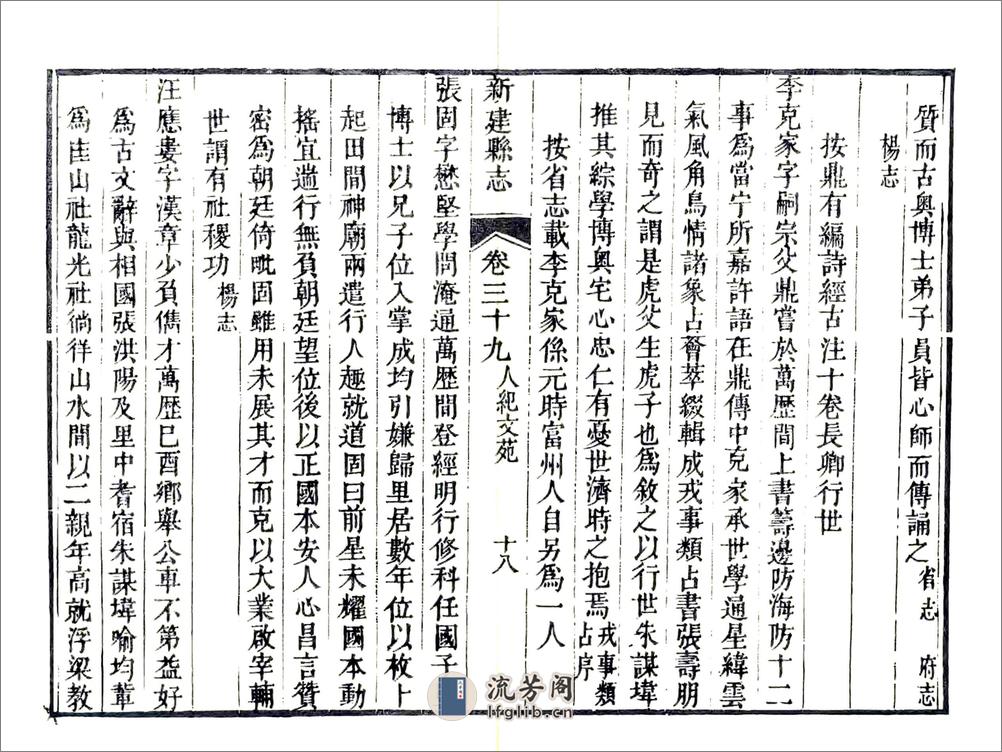 質而古奧博士弟子員皆心師而傳誦之省志 府志
楊志
按鼎有編詩經古注十卷長卿行世
李克家字嗣宗父鼎嘗於萬歷間上書籌邊防海防十二
事為當宁所嘉許語在鼎傳中克家承世學通星緯雲
氣風角鳥情諸象占薈萃綴輯成戎事類占書張壽朋
見而奇之謂是虎父生虎子也為敘之以行世朱謀㙔
推其綜學博奧宅心忠仁有憂世濟時之抱焉戎事類占序
按省志載李克家係元時富州人自另為一人
新建縣志 卷三十九 人紀文苑 十八
張固字懋堅學問淹通萬歷間登經明行修科任國子
博士以兄子位入掌成均引嫌歸里居數年位以枚卜
起田間神廟兩遣行人趣就道固曰前星未耀國本動
搖宜遄行無負朝廷望位後以正國本安人心昌言贊
密為朝廷倚毗固雖用未展其才而克以大業啟宰輔
世謂有社稷功楊志
汪應婁字漢章少負儁才萬歷己酉鄉舉公車不第益好
為古文辭與相國張洪陽及里中耆宿朱謀㙔喻均輩
為佳山社龍光社徜徉山水間以二親年高就浮梁教
流芳阁
lfglib.cn